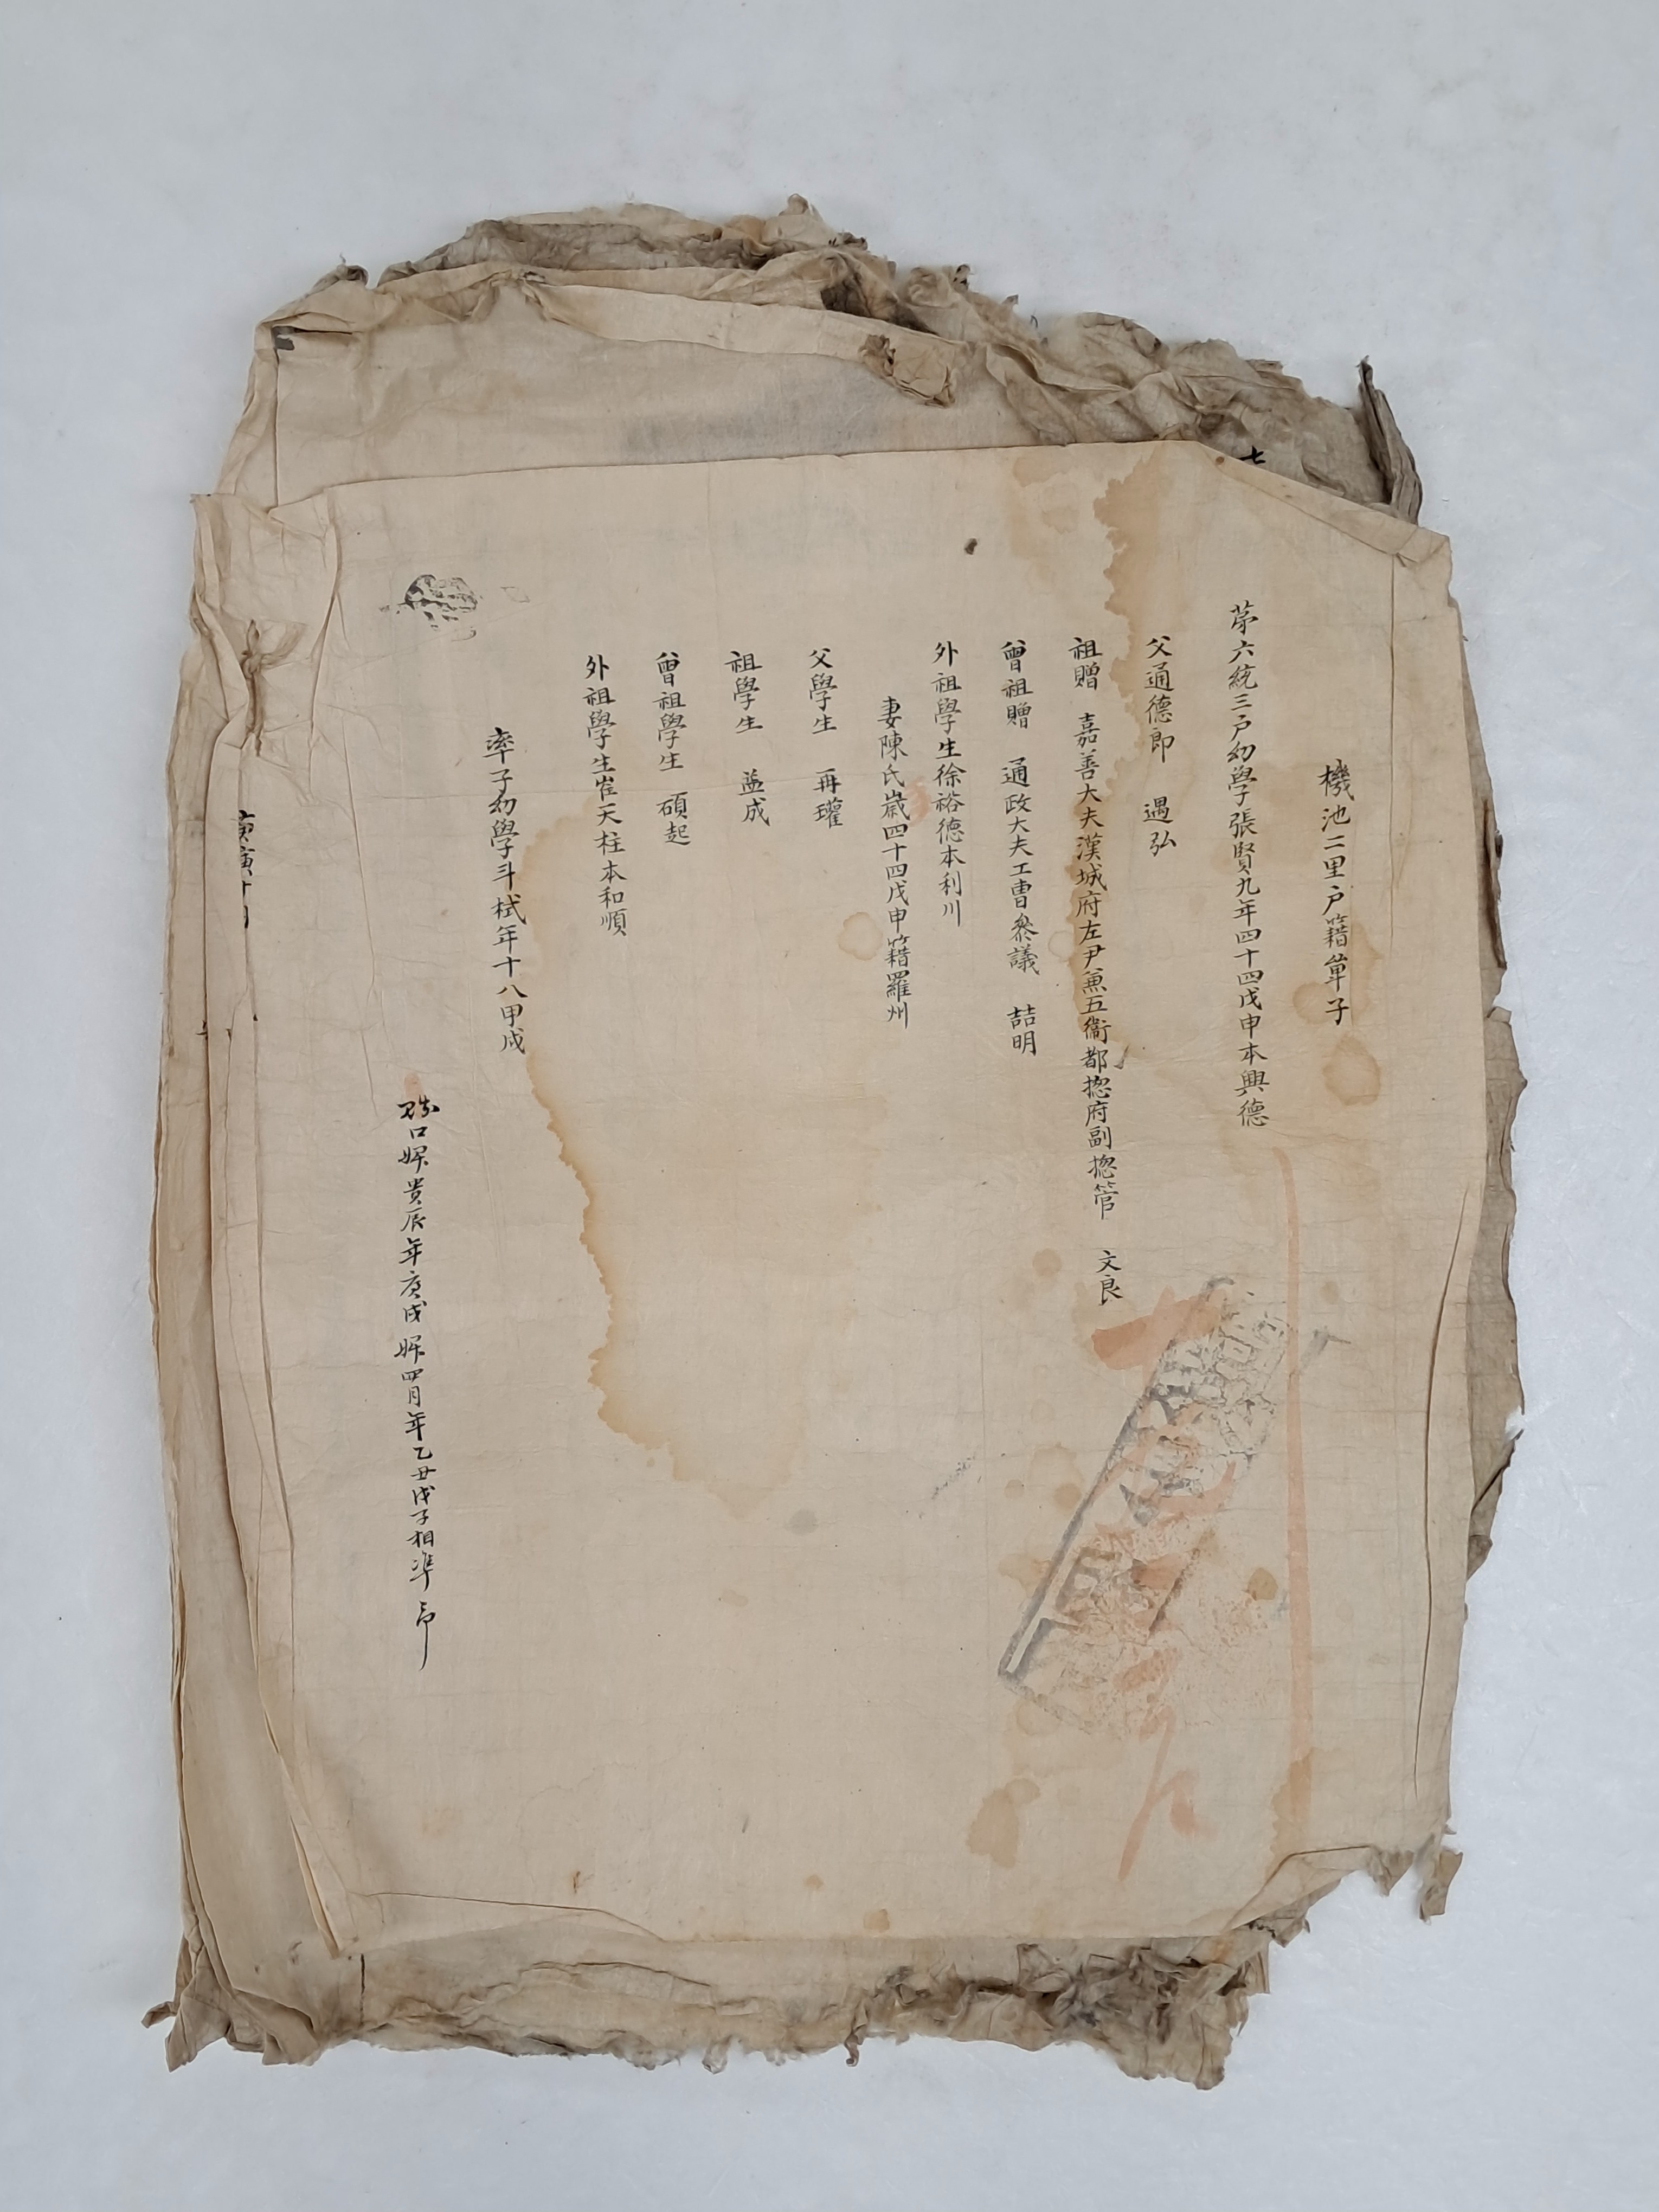 機池二里户籍單子
第六統三户幼學張賢九年四十四戊申本興德
父通德郎 遇弘
祖贈 嘉善大夫漢城府左尹兼五衛都揔府副揔管 文良
曾祖贈 通政大夫工曹叅議 喆明
外祖學生徐裕德本利川
妻陳氏歲四十四戊申籍羅州
父學生 再瓘
祖學生 益成
曾祖學生 碩起
外祖學生崔天柱本和順
率子幼學斗栻年十八甲戌
口婢貴辰年庚戌婢四月年乙丑戊子相準印